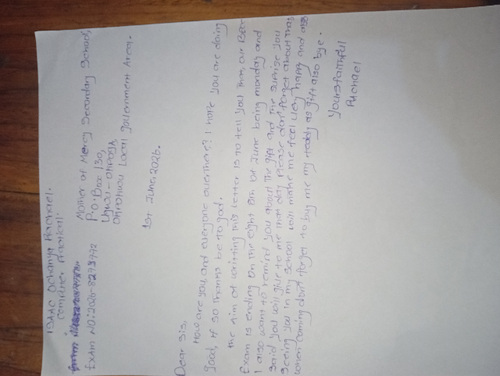 ISAAC Ochanya Rachael.
Computer practical.
EXAM NO: 2026 8293772
Mother of Mercy Secondary School,
P.O. Box 130,
Ugwu-
Local government Area.
1st June, 2026.
Dear Sis,
How are you and everyone over there? I hope you are doing
good, if so thanks be to god.
the aim of writing this letter is to tell you that our
Exam is ending on the eight 8th of June being monday and
I also want to remind you about the gift and the surprise you
said you will give to me that day please don't forget about that
seeing you in my school will make me feel very happy and
when coming don't forget to buy me my teddy as gift also bye.
Yours faithful
Rachael